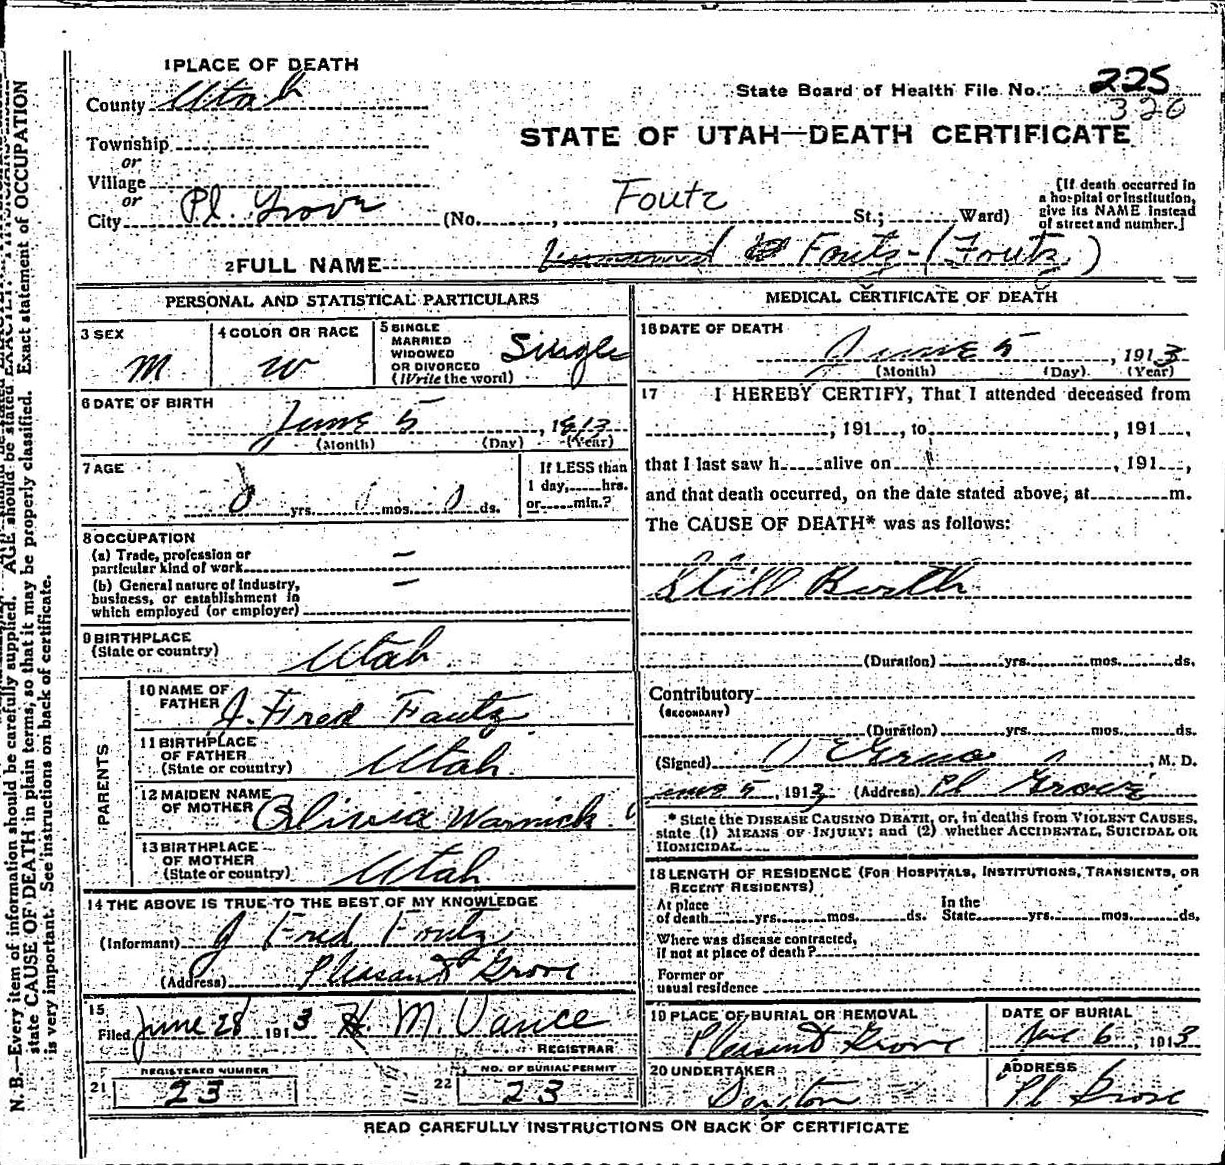 1 PLACE OF DEATH
County Utah
State Board of Health File No. 225
320
Township
or
Village
or
City Pl. Grove
STATE OF UTAH—DEATH CERTIFICATE
(No. , Foutz St.; Ward)
[If death occurred in
a hospital or institution,
give its NAME instead
of street and number.]
2 FULL NAME Unnamed Foutz-(Foutz)
PERSONAL AND STATISTICAL PARTICULARS
3 SEX
M
4 COLOR OR RACE
W
5 SINGLE
MARRIED
WIDOWED
OR DIVORCED
(Write the word)
Single
6 DATE OF BIRTH
June 5, 1913
(Month) (Day) (Year)
7 AGE
0 yrs. mos. 0 ds.
If LESS than
1 day, hrs.
or min.?
8 OCCUPATION
(a) Trade, profession or
particular kind of work —
(b) General nature of industry,
business, or establishment in
which employed (or employer) —
9 BIRTHPLACE
(State or country) Utah
PARENTS
10 NAME OF
FATHER J. Fred Foutz
11 BIRTHPLACE
OF FATHER
(State or country) Utah
12 MAIDEN NAME
OF MOTHER Olivia Warnick
13 BIRTHPLACE
OF MOTHER
(State or country) Utah
14 THE ABOVE IS TRUE TO THE BEST OF MY KNOWLEDGE
(Informant) J Fred Foutz
(Address) Pleasant Grove
15
Filed June 28 1913 H. M. Vance
REGISTRAR
21 REGISTERED NUMBER
23
22 NO. OF BURIAL PERMIT
23
MEDICAL CERTIFICATE OF DEATH
16 DATE OF DEATH
June 5, 1913
(Month) (Day) (Year)
17 I HEREBY CERTIFY, That I attended deceased from
, 191 , to , 191 ,
that I last saw h alive on , 191 ,
and that death occurred, on the date stated above, at m.
The CAUSE OF DEATH* was as follows:
Still Birth
(Duration) yrs. mos. ds.
Contributory
(SECONDARY)
(Duration) yrs. mos. ds.
(Signed) , M. D.
June 5, 1913 (Address) Pl Grove
* State the DISEASE CAUSING DEATH, or, in deaths from VIOLENT CAUSES,
state (1) MEANS OF INJURY; and (2) whether ACCIDENTAL, SUICIDAL OR
HOMICIDAL.
18 LENGTH OF RESIDENCE (FOR HOSPITALS, INSTITUTIONS, TRANSIENTS, OR
RECENT RESIDENTS)
At place
of death yrs. mos. ds.
In the
State yrs. mos. ds.
Where was disease contracted,
if not at place of death?
Former or
usual residence
19 PLACE OF BURIAL OR REMOVAL
Pleasant Grove
DATE OF BURIAL
June 6, 1913
20 UNDERTAKER
ADDRESS
Pl Grove
READ CAREFULLY INSTRUCTIONS ON BACK OF CERTIFICATE
N. B.—Every item of information should be carefully supplied. AGE should be stated EXACTLY.
state CAUSE OF DEATH in plain terms, so that it may be properly classified. Exact statement of OCCUPATION
is very important. See instructions on back of certificate.